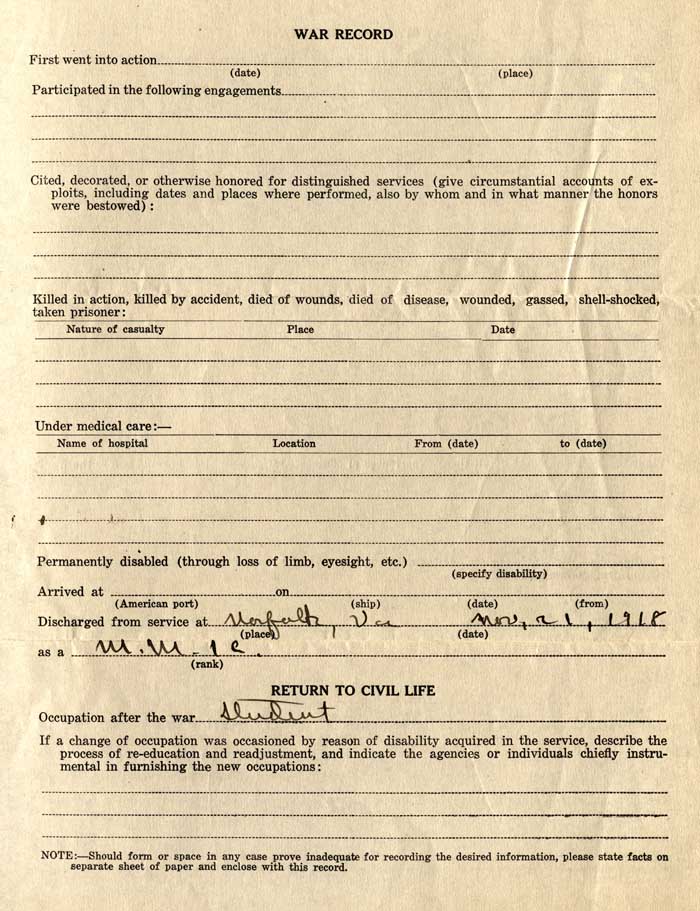 WAR RECORD
First went into action
(date) (place)
Participated in the following engagements
Cited, decorated, or otherwise honored for distinguished services (give circumstantial accounts of ex-
ploits, including dates and places where performed, also by whom and in what manner the honors
were bestowed) :
Killed in action, killed by accident, died of wounds, died of disease, wounded, gassed, shell-shocked,
taken prisoner:
Nature of casualty Place Date
Under medical care:—
Name of hospital Location From (date) to (date)
Permanently disabled (through loss of limb, eyesight, etc.)
(specify disability)
Arrived at on
(American port) (ship) (date) (from)
Discharged from service at Norfolk, Va Nov, 21, 1918
(place) (date)
as a M.M-1c.
(rank)
RETURN TO CIVIL LIFE
Occupation after the war student
If a change of occupation was occasioned by reason of disability acquired in the service, describe the
process of re-education and readjustment, and indicate the agencies or individuals chiefly instru-
mental in furnishing the new occupations:
NOTE:—Should form or space in any case prove inadequate for recording the desired information, please state facts on
separate sheet of paper and enclose with this record.